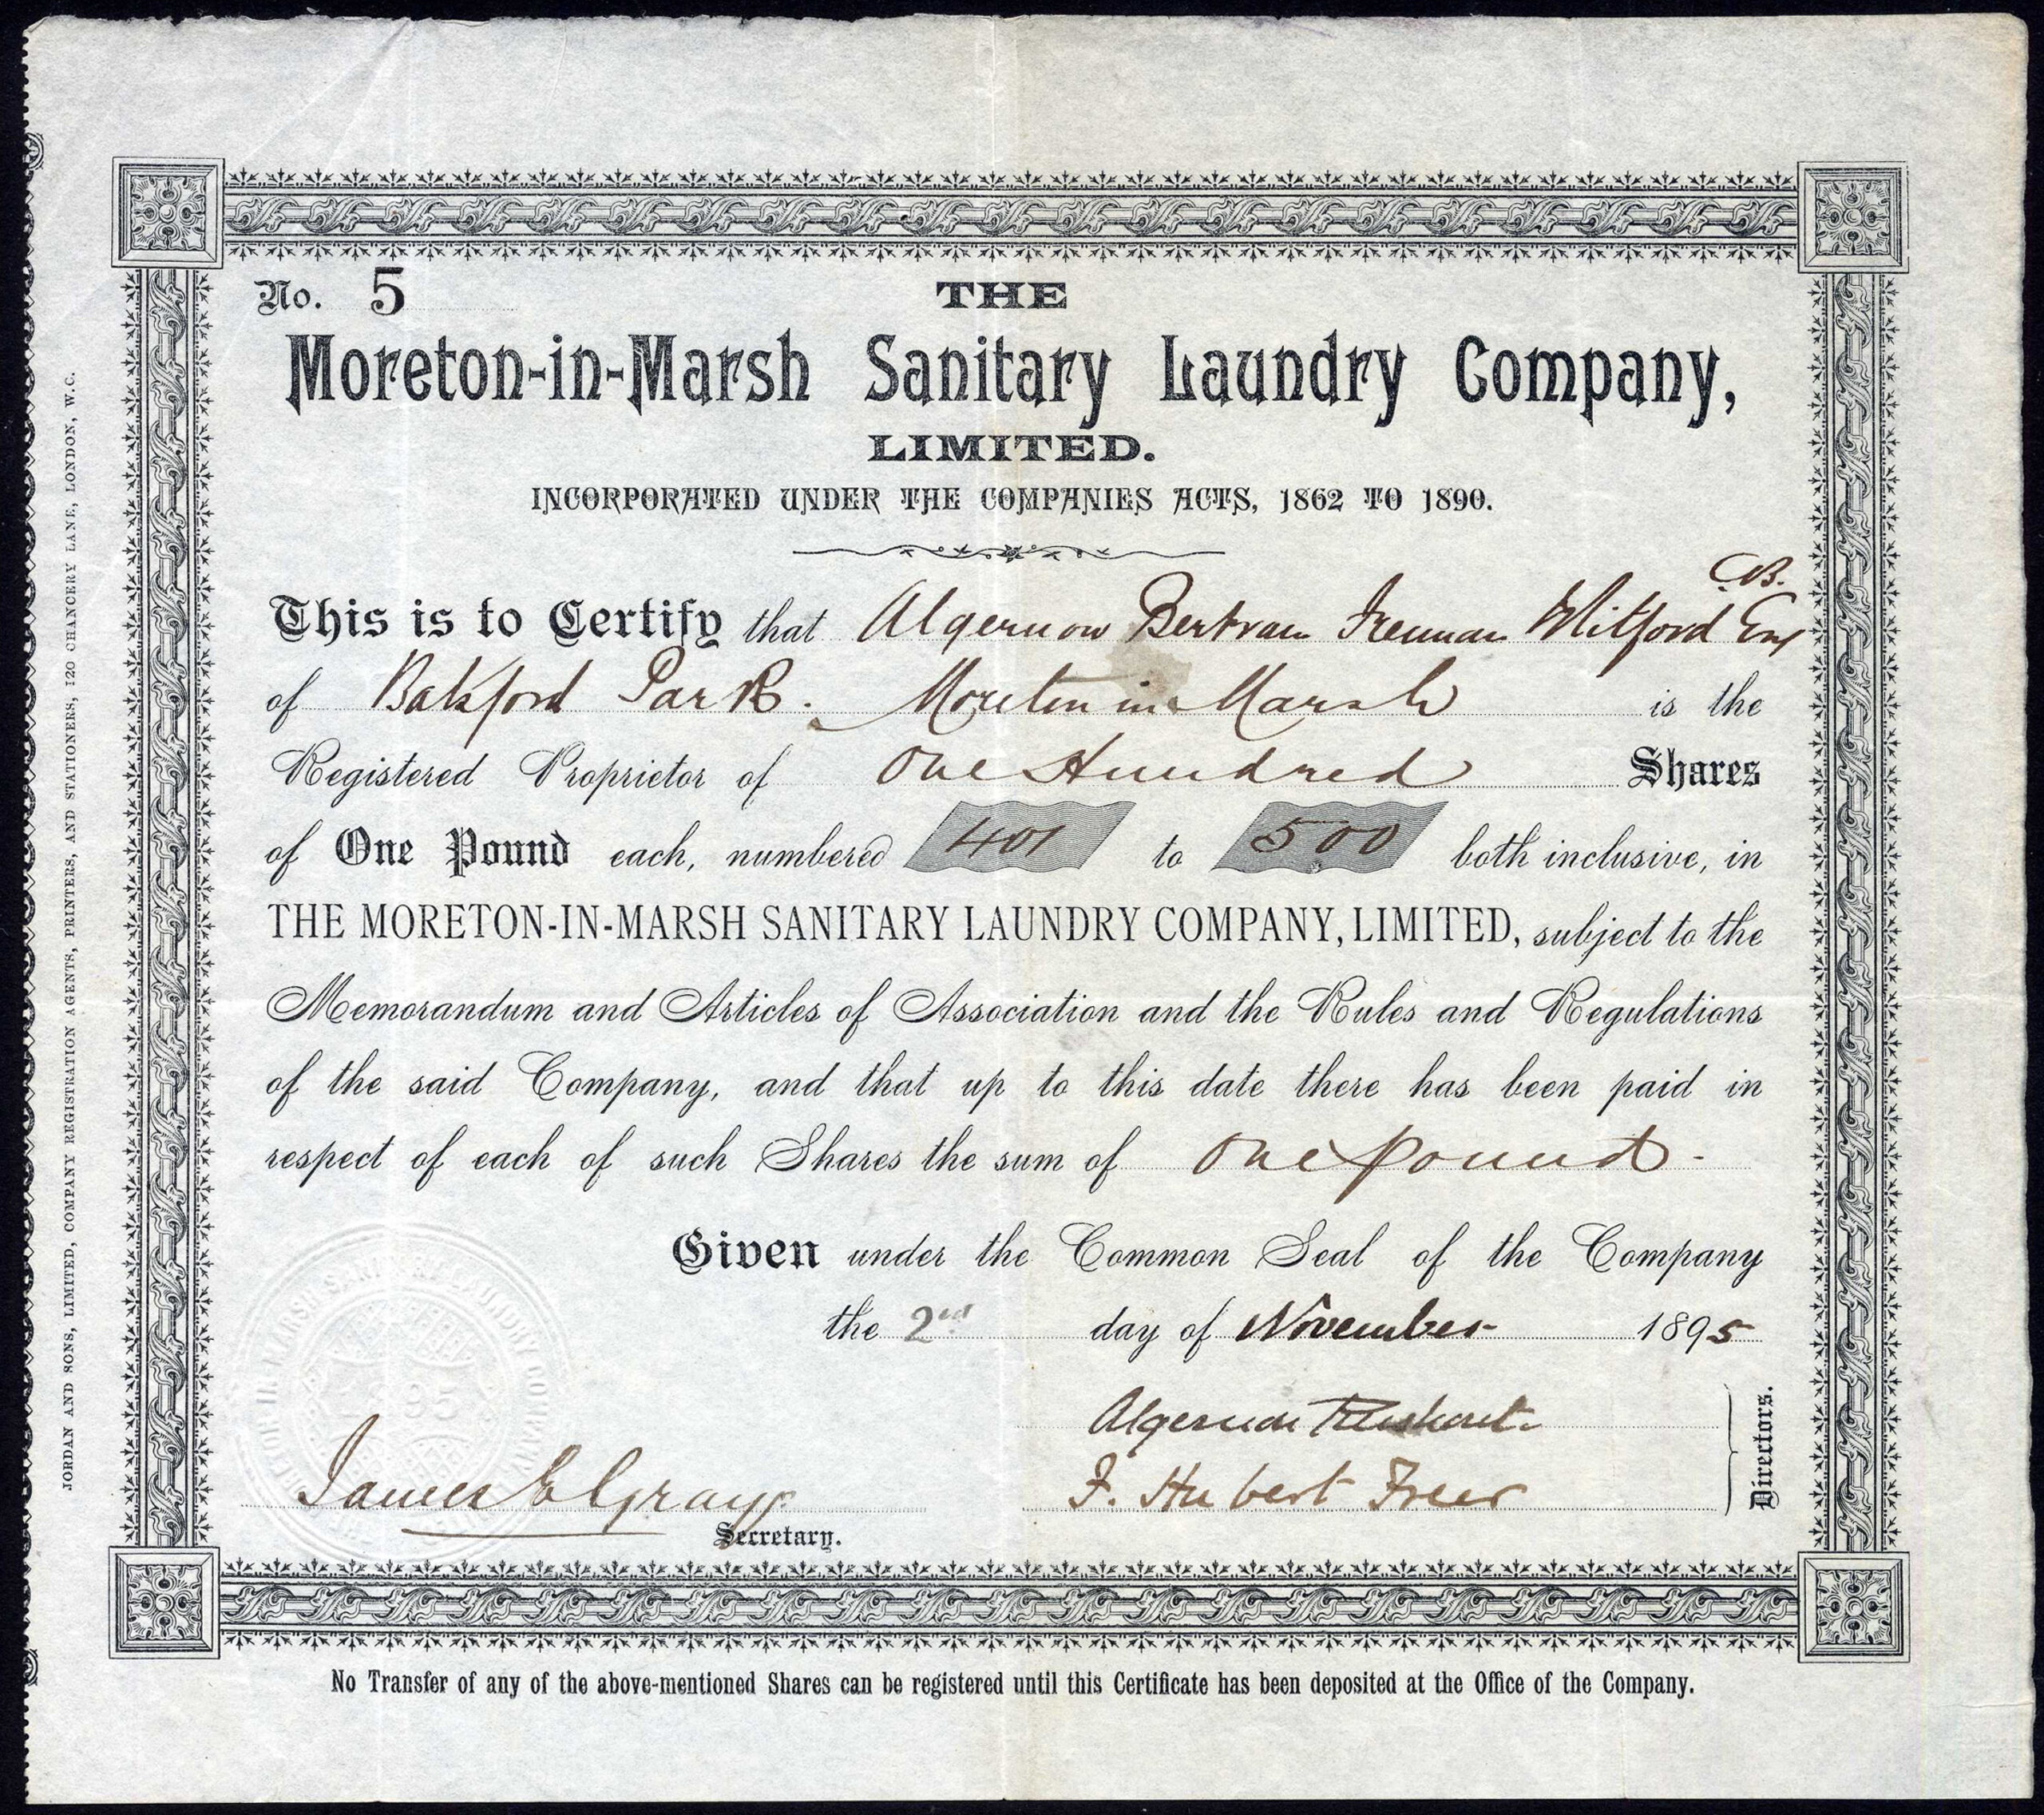 No. 5
THE
Moreton-in-Marsh Sanitary Laundry Company,
LIMITED.
INCORPORATED UNDER THE COMPANIES ACTS, 1862 TO 1890.
C.B.
This is to Certify that Algernon Bertram Freeman Mitford Esq
of Batsford Park. Moreton in Marsh is the
Registered Proprietor of One Hundred Shares
of One Pound each, numbered 401 to 500 both inclusive, in
THE MORETON-IN-MARSH SANITARY LAUNDRY COMPANY, LIMITED, subject to the
Memorandum and Articles of Association and the Rules and Regulations
of the said Company, and that up to this date there has been paid in
respect of each of such Shares the sum of One pound -
Given under the Common Seal of the Company
the 2nd day of November 1895
Algernon Rushout
F. Hubert Freer
Directors.
James E Gray
Secretary.
No Transfer of any of the above-mentioned Shares can be registered until this Certificate has been deposited at the Office of the Company.
JORDAN AND SONS, LIMITED, COMPANY REGISTRATION AGENTS, PRINTERS, AND STATIONERS, 120 CHANCERY LANE, LONDON, W.C.